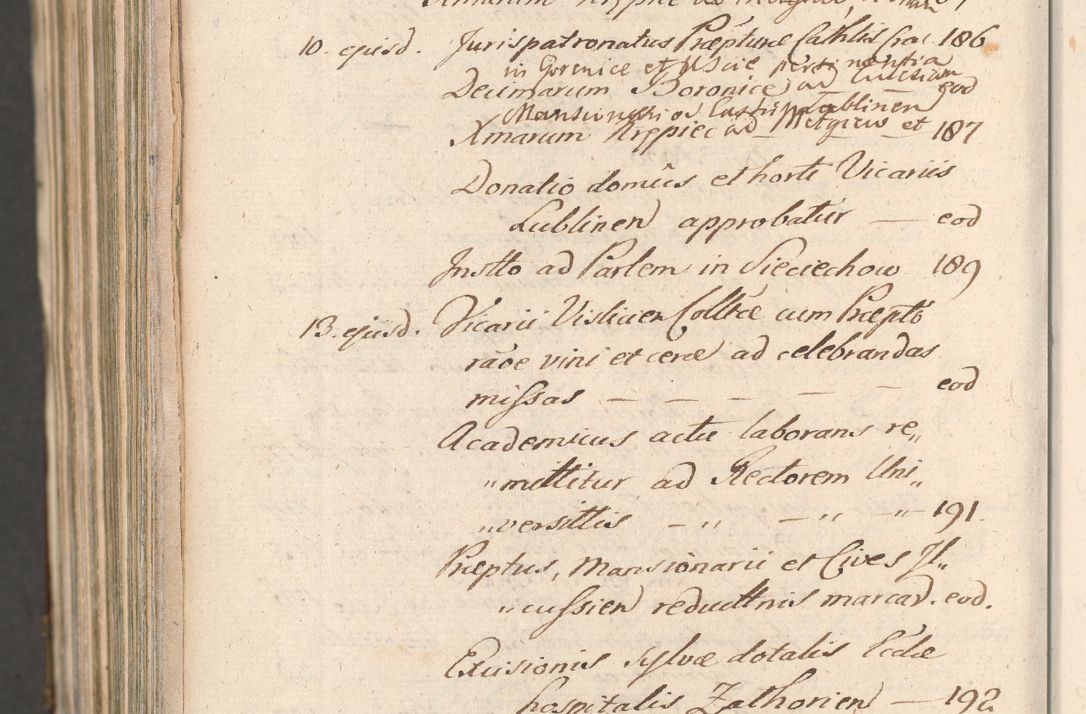 10. ejusd. Jurispatronatus Præpturæ Cathlis Crac 186
in Gorenice et Uscie pertinentia
Decimarum Boronice ad Ecclesiam eod
Mansionarios Castri Lublinen
Xmarum Krępiec ad Mełgiew et 187
Donatio domûs et horti Vicariis
Lublinen approbatur — eod
Instto ad Parlem in Sieciechow 189
13. ejusd. Vicarii Vislicien Colltæ cum Præpto
rãoe vini et ceræ ad celebrandas
missas — — — — — eod
Academicus actu laborans re„
„mittitur ad Rectorem Uni„
„versittis – „ – „ – „ – 191.
Præptus, Mansionarii et Cives Il„
„cussien reducttnis marcar. eod.
Excisionis sylvæ dotalis Eccle
hospitalis Zathorien — 192